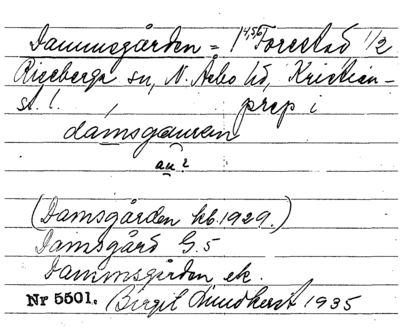 Dammsgården = 1 4,5,6 Forestad 1/2
Riseberga sn, N. Åsbo hd, Kristian-
st. l. prep i
damsgauren
au?
(Damsgården kb. 1929.)
Damsgård G. 5
Dammsgården ek.
Nr 5501. Birgit Lundkvist 1935